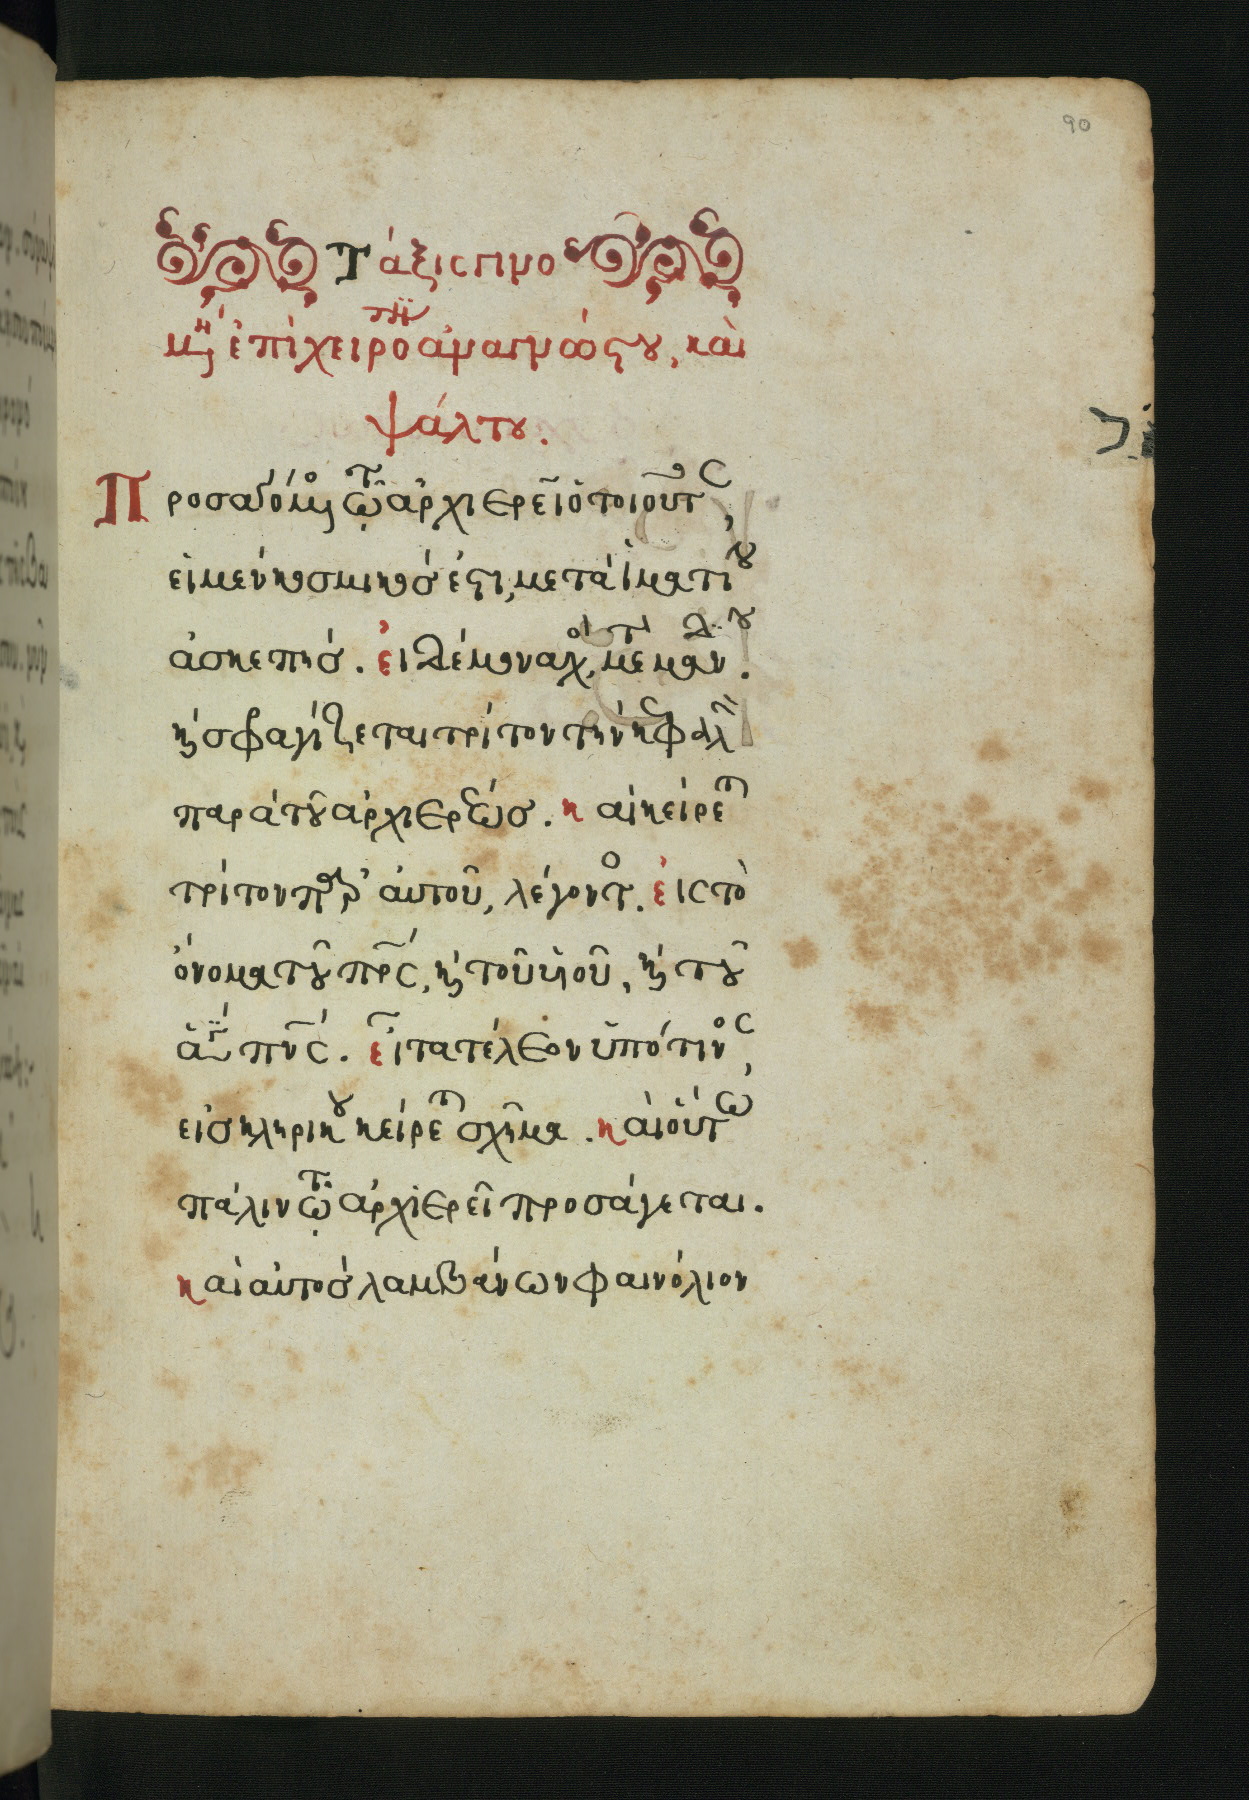 90
Τάξις γινο
μ(έν)η ἐπὶ χειροτ(ο)ν(ίᾳ) ἀναγνώστου, καὶ
ψάλτου.
Προσαγόμ(εν)ος τῷ ἀρχιερεῖ ὁ τοιοῦτος,
εἰ μὲν κοσμικός ἐστι, μετὰ ἱματίου
ἀσκεπής. εἰ δὲ μοναχὸς, μετὰ μανδύου.
κ(αὶ) σφραγίζεται τρίτον τὴν κεφαλὴν
παρὰ τοῦ ἀρχιερέως. καὶ κείρεται
τρίτον παρ' αὐτοῦ, λέγοντος. εἰς τὸ
ὄνομα τοῦ πρς, κ(αὶ) τοῦ υἱοῦ, κ(αὶ) τοῦ
ἁγίου πνς. εἶτα τέλεον ὑπό τινος,
εἰς κληρικοῦ κείρεται σχῆμα. καὶ οὕτω
πάλιν τῷ ἀρχιερεῖ προσάγεται.
καὶ αὐτὸς λαμβάνων φαινόλιον